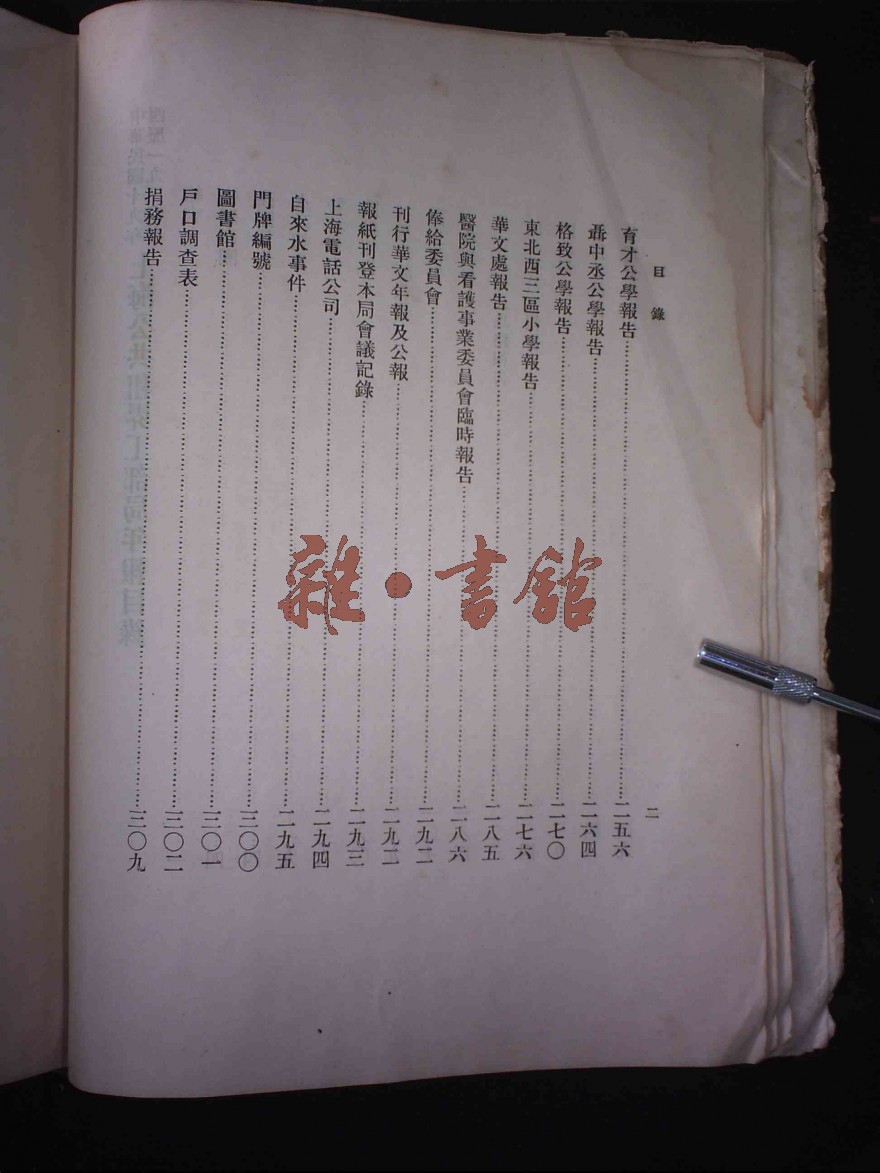 目錄
二
育才公學報告……二五六
聶中丞公學報告……二六四
格致公學報告……二七〇
東北西三區小學報告……二七六
華文處報告……二八五
醫院與看護事業委員會臨時報告……二八六
俸給委員會……二九二
刊行華文年報及公報……二九二
報紙刊登本局會議記錄……二九三
上海電話公司……二九四
自來水事件……二九五
門牌編號……三〇〇
圖書館……三〇一
戶口調查表……三〇二
捐務報告……三〇九
雜·書館